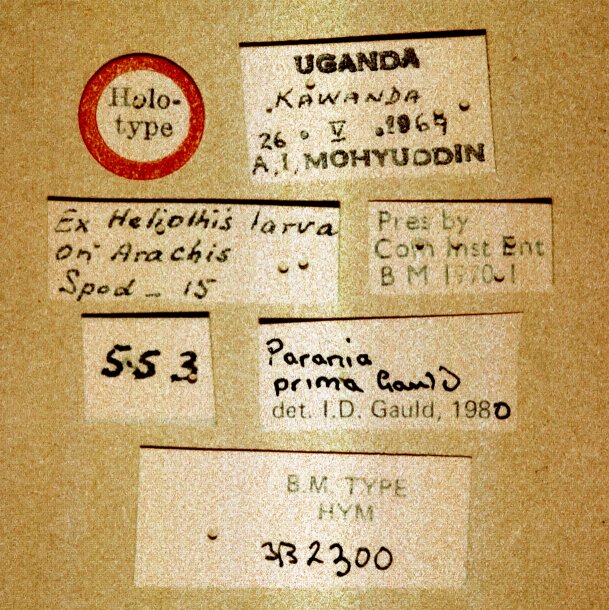 Holo-
type
UGANDA
KAWANDA
26 . V . 1967
A.I. MOHYUDDIN
Ex Heliothis larva
on Arachis
Spod - 15
Pres by
Com Inst Ent
B M 1970-1
553
Parania
prima Gauld
det. I.D. Gauld, 1980
B.M. TYPE
HYM
3B2300